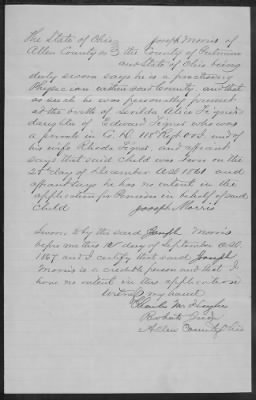 The State of Ohio } Joseph Morris of
Allen County ss } the County of Putnam
and State of Ohio being
duly sworn says he is a practising
Physician within said County, and that
as such he was personally present
at the birth of Alice
daughter of Edward who was
a private in Co D 118 Regt O.V.I. and of
his wife Rhoda and affiant
says that said child was born on the
25 day of December A.D. 1861 and
affiant says he has no interest in the
application for Pension in behalf of said
Child Joseph Morris
Sworn to by the said Joseph Morris
before me this 10 day of September A.D.
1867 and I certify that said Joseph
Morris is a credible person and that I
have no interest in this application
my hand
Charles M Hughes
Probate Judge
Allen County Ohio